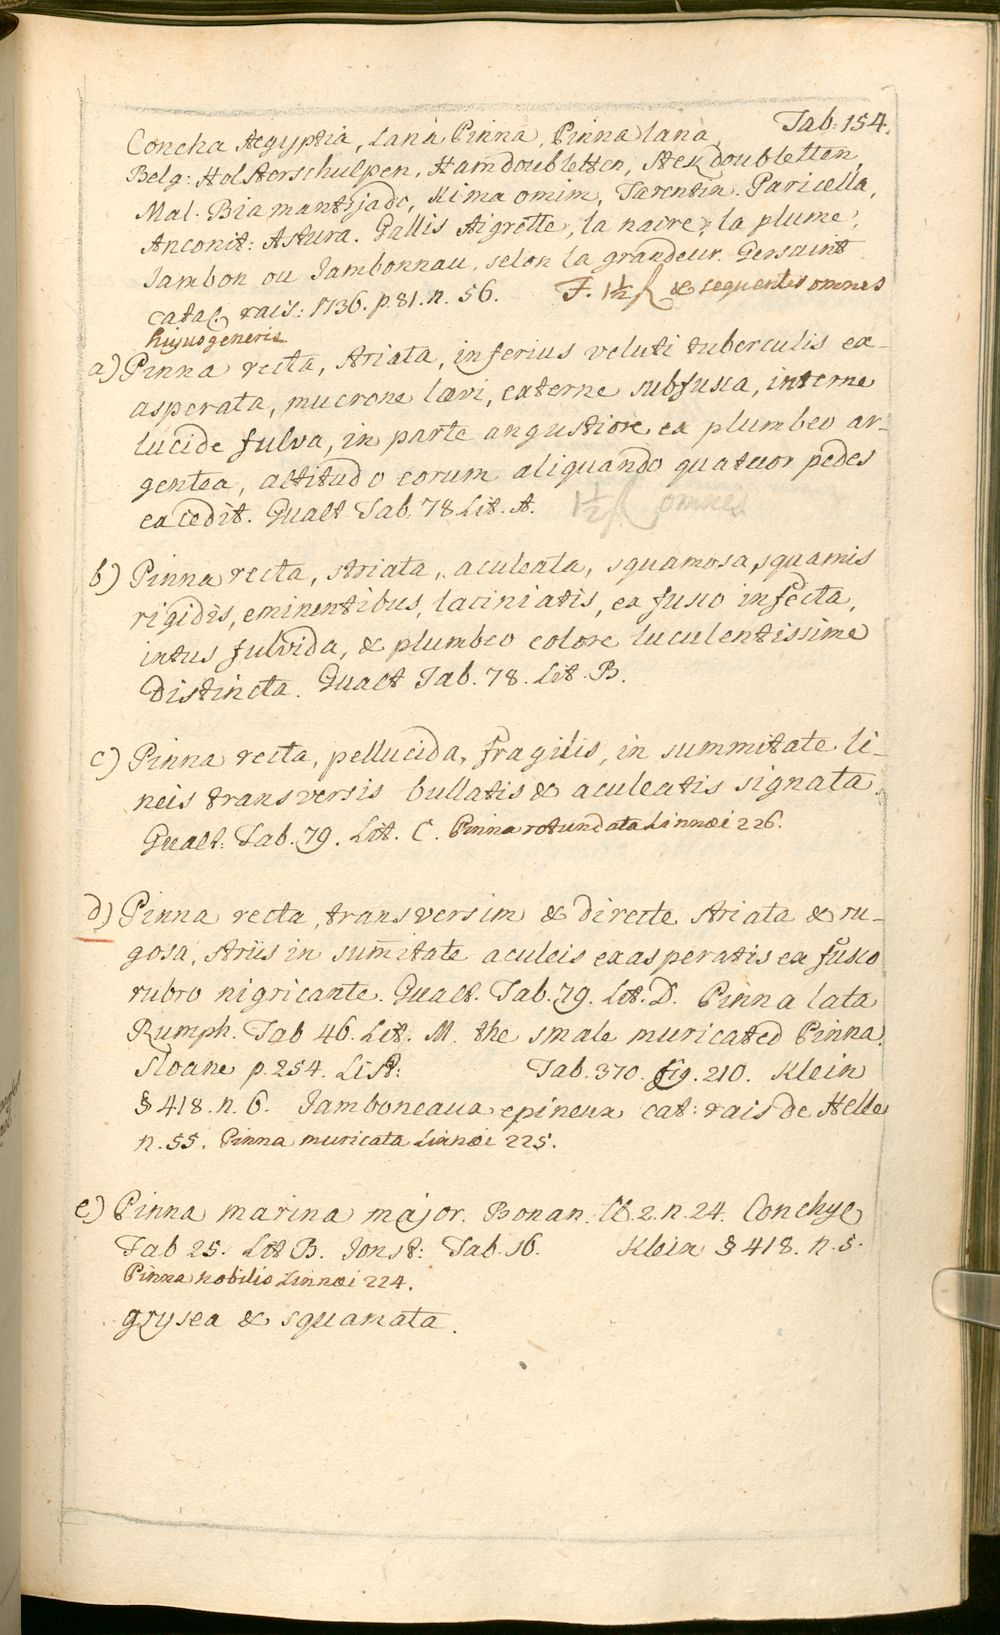 Tab: 154.
Concha Aegyptia, Lana Pinna, Pinna lana,
Belg: Holsterschulpen, Hamdoubletten, Stekdoubletten,
Mal. Biamantsjado, Kima omim, Tarentin. Paricella,
Anconit: Astura. Gallis Aigrette, la nacre, la plume,
Jambon ou Jambonnau, selon la grandeur. Gersaint
catal. rais: 1736. p. 81. n. 56. F. 1½ & sequentes omnes
hujus generis
a) Pinna recta, striata, inferius veluti tuberculis ex-
asperata, mucrone laevi, externe subfusca, interne
lucide fulva, in parte angustiore ex plumbeo ar-
gentea, altitudo eorum aliquando quatuor pedes
excedit. Gualt Tab. 78 Lit. A. 1½ omnes
b) Pinna recta, striata, aculeata, squamosa, squamis
rigidis, eminentibus, laciniatis, ex fusco infecta,
intus fulvida, & plumbeo colore luculentissime
distincta. Gualt Tab. 78. Lit. B.
c) Pinna recta, pellucida, fragilis, in summitate li-
neis transversis bullatis & aculeatis signata.
Gualt. Tab. 79. Lit. C. Pinna rotundata Linnaei 226.
d) Pinna recta, transversim & directe striata & ru-
gosa, striis in sum̄itate aculeis exasperatis ex fusco
rubro nigricante. Gualt. Tab. 79. Lit. D. Pinna lata
Rumph. Tab 46. Lit. M. the smale muricated Pinna.
Sloane p. 254. List: Tab. 370. fig. 210. Klein
§ 418. n. 6. Jamboneaux epineux cat: rais de Helle
n. 55. Pinna muricata Linnaei 225.
e) Pinna marina major. Bonan. Cl. 2. n. 24. Conchyl
Tab 25. Lit B. Jonst: Tab. 16. Klein § 418. n. 5.
Pinna nobilis Linnaei 224.
grysea & squamata.